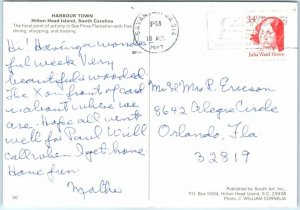 HARBOUR TOWN
Hilton Head Island, South Carolina
The focal point of activity in Sea Pines Plantation with fine
dining, shopping, and boating.
Hi! Having a wonder
ful week. Very
beautiful, wooded
The X on front of card
is about where we
are. Hope all went
well for Paul. Will
call when I get home
Have fun.
Mother
PM
18 AUG
1987
14
USA
Julia Ward Howe
Mr & Mrs P. Ericson
8642 Allegre Circle
Orlando, Fla
32819
Published by South Art, Inc.
PO. Box 5304, Hilton Head Island, S.C. 29938
Photo © WILLIAM CORNELIA